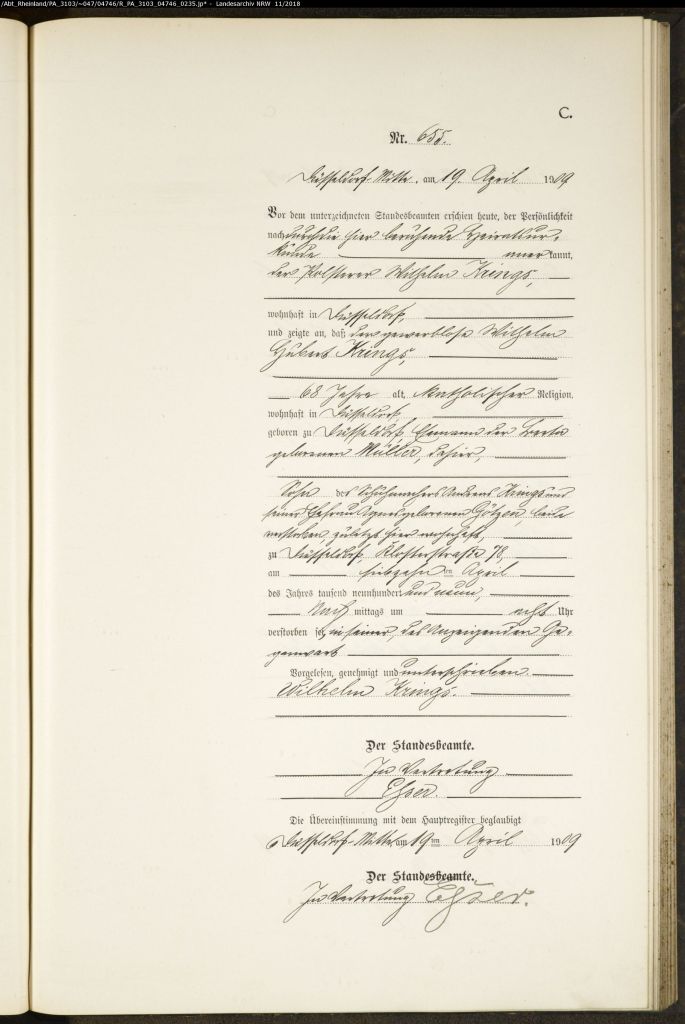 /Abt_Rheinland/PA_3103/~047/04746/R_PA_3103_04746_0235.jp* - Landesarchiv NRW 11/2018
C.
Nr. 655.
Düsseldorf-Mitte, am 19. April 1909
Vor dem unterzeichneten Standesbeamten erschien heute, der Persönlichkeit
nach durch die hier beruhende Heiratsur-
kunde anerkannt,
der Polsterer Wilhelm Krings,
wohnhaft in Düsseldorf,
und zeigte an, daß der gewerblose Wilhelm
Hubert Krings,
68 Jahre alt, katholischer Religion,
wohnhaft in Düsseldorf,
geboren zu Düsseldorf, Ehemann der
geborenen Müller, dahier,
Sohn des Schuhmachers Andreas Krings und
seiner Ehefrau Agnes geborenen Götzen, beide
verstorben, zuletzt hier wohnhaft,
zu Düsseldorf, Klosterstraße 78,
am siebzehnten April
des Jahres tausend neunhundert und neun,
Nachmittags um acht Uhr
verstorben sei, in seiner, des Anzeigenden Ge-
genwart
Vorgelesen, genehmigt und unterschrieben.
Wilhelm Krings.
Der Standesbeamte.
In Vertretung
Esser.
Die Übereinstimmung mit dem Hauptregister beglaubigt
Düsseldorf-Mitte, am 19ten April 1909
Der Standesbeamte.
In Vertretung Esser.